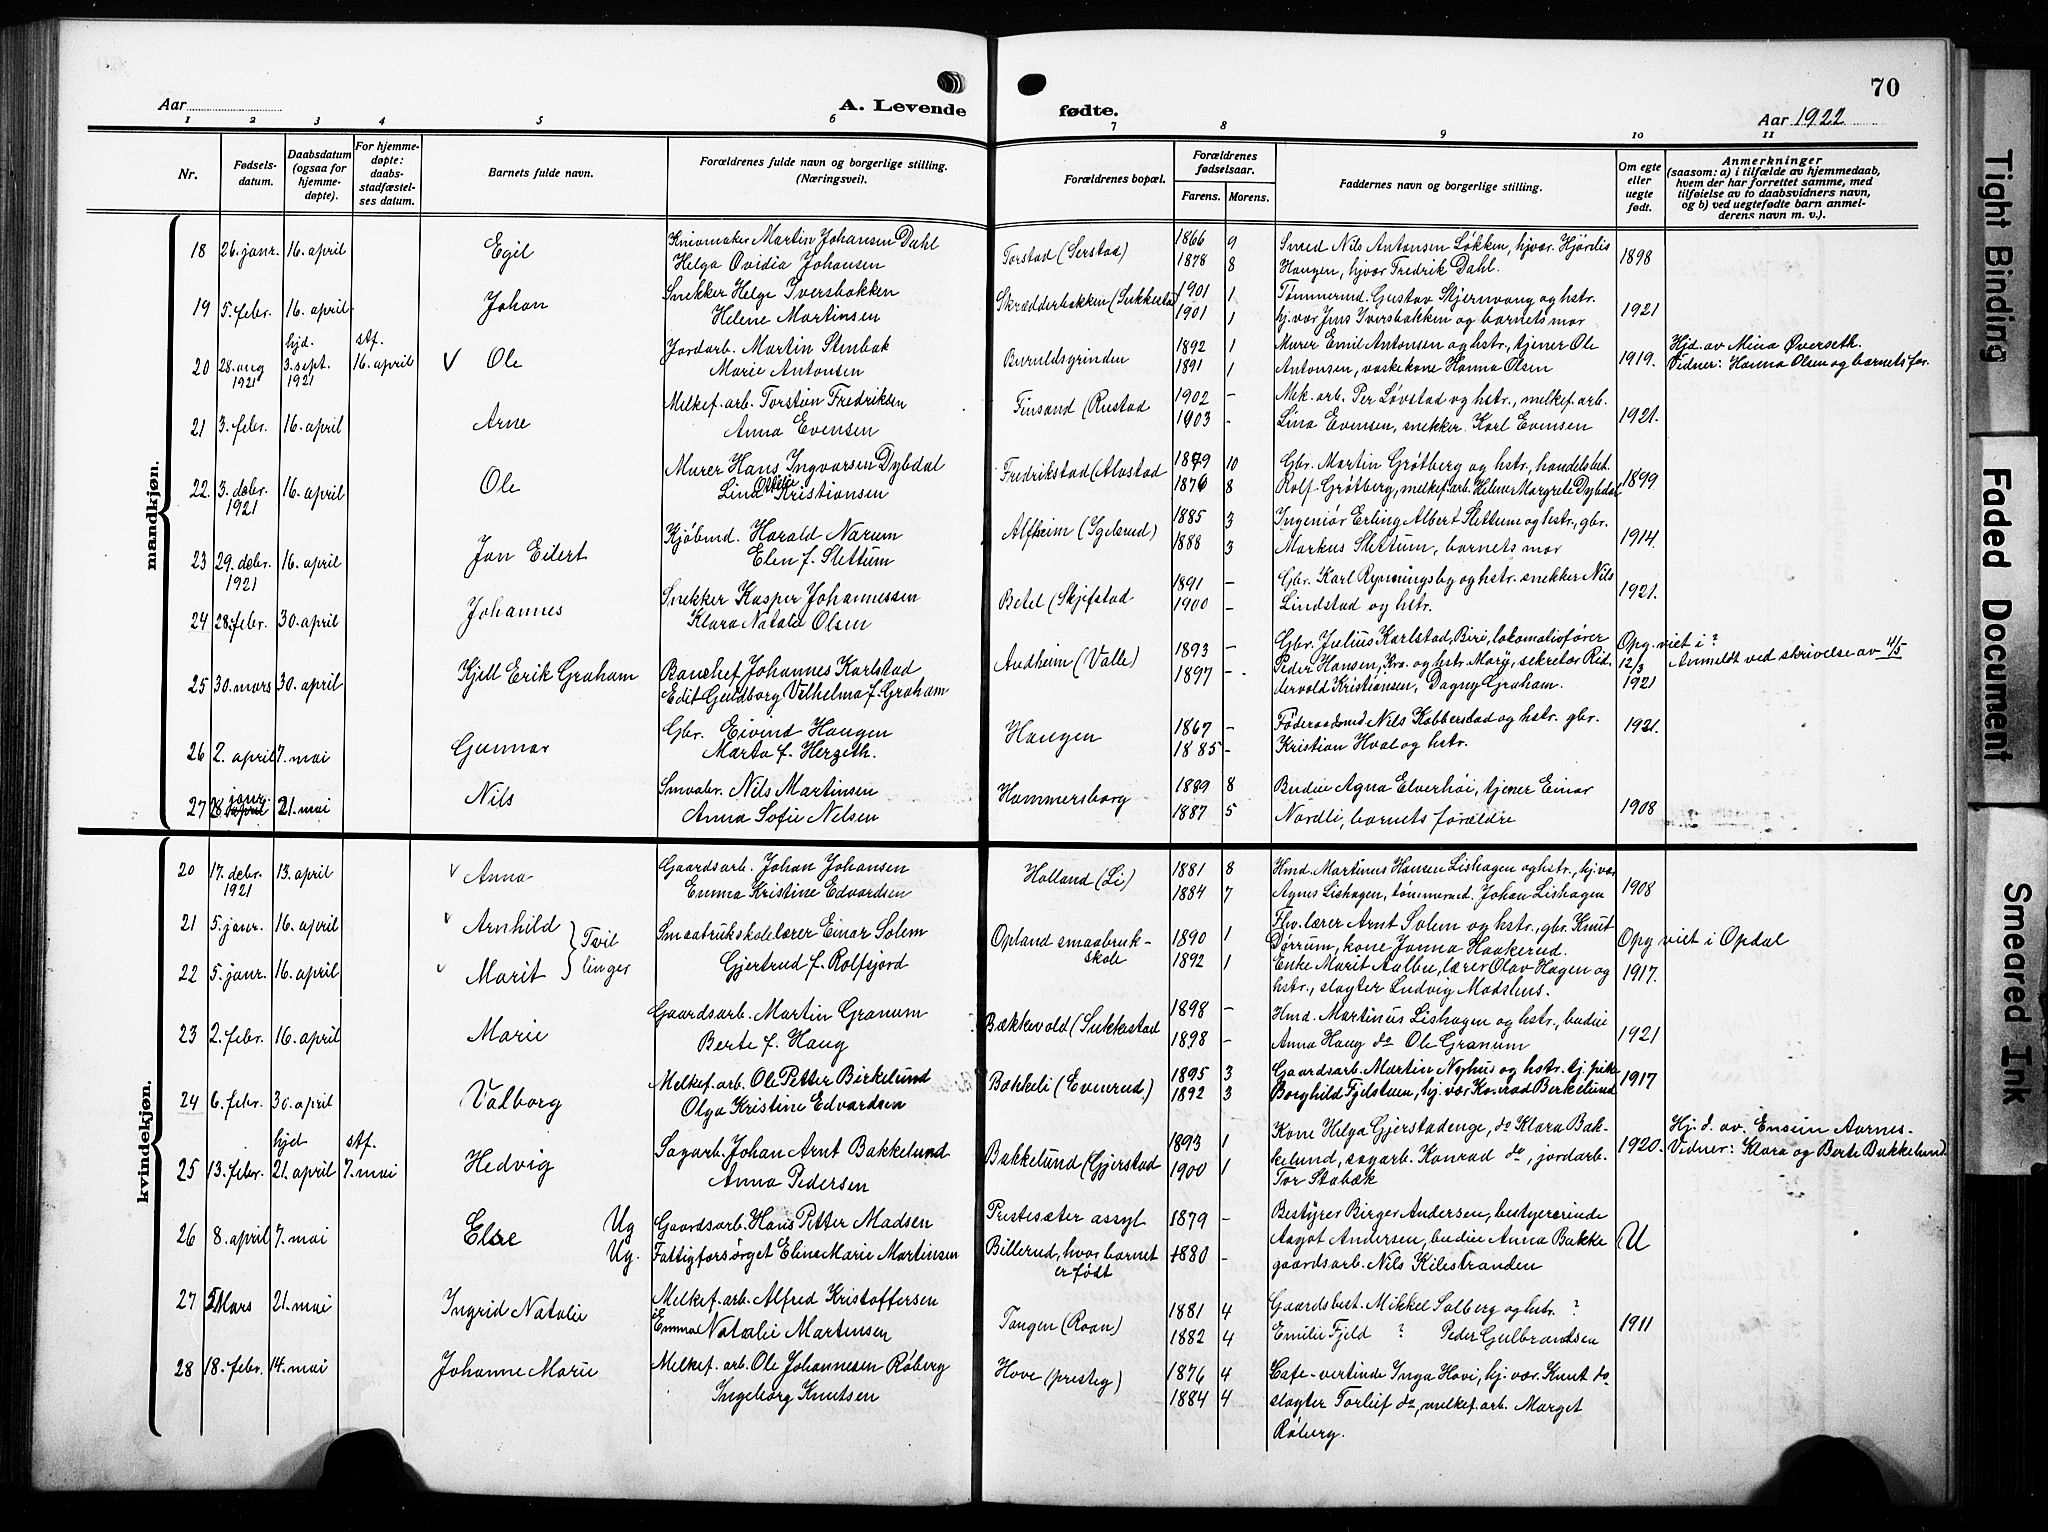 70
Aar
A. Levende
fødte.
Aar 1922
1 2 3 4 5 6 7 8 9 10 11
Nr.
Fødsels-
datum.
Daabsdatum
(ogsaa for
hjemme-
døpte).
For hjemme-
døpte:
daabs-
stadfæstel-
ses datum.
Barnets fulde navn.
Forældrenes fulde navn og borgerlige stilling.
(Næringsvei).
Forældrenes bopæl.
Forældrenes
fødselsaar.
Farens. Morens.
Faddernes navn og borgerlige stilling.
Om egte
eller
uegte
født.
Anmerkninger
(saasom: a) i tilfælde av hjemmedaab,
hvem der har forrettet samme, med
tilføielse av to daabsvidners navn,
og b) ved uegtefødte barn anmel-
derens navn m. v.).
mandkjøn.
18 26. janr. 16. april Egil Knivmaker Martin Johansen Dahl Torstad (Serstad) 1866 9 Smed Nils Antonsen Løkken, hj.vær. Hjørdis 1898
Helga Ovidia Johansen 1878 8 Haugen, hjvær Fredrik Dahl.
19 5. febr. 16. april Johan Snekker Helge Iversbakken Skrædderbakken (Sukkestad 1901 1 Tømmermd. Gustav Stjernvang og hstr. 1921
Helene Martinsen 1901 1 hj.vær Jens Iversbakken og barnets mor
hjd. stf.
20 28. aug 3. sept. 16. april V Ole Jordarb. Martin Stenbak Buruldsgrinden 1892 1 Murer Emil Antonsen og hstr., tjener Ole 1919. Hjd. av Mina Øverseth.
1921 1921 Marie Antonsen 1891 1 Antonsen, vaskekone Hanna Olsen Vidner: Hanna Olsen og barnets far.
21 3. febr. 16. april Arne Melkef. arb. Torstein Fredriksen Finsand (Rustad 1902 - Mek. arb. Per Løvstad og hstr., melkef. arb. 1921.
Anna Evensen 1903 - Lina Evensen, snekker Karl Evensen
22 3. debr. 16. april Ole Murer Hans Ingvarsen Dybdal Fredrikstad (Alvstad 1879 10 Gbr. Martin Grøtberg og hstr., handelsbet. 1899
1921 Lina Othilie Kristiansen 1876 8 Rolf Grøtberg, melkef. arb. Helmer Margrete Dybdal
23 29. debr. 16. april Jan Eilert Kjøbmd. Harald Narum Alfheim (Igelsrud) 1885 3 Ingeniør Erling Albert Slettum og hstr., gbr. 1914.
1921 Elen f. Slettum 1888 3 Markus Slettum, barnets mor
24 28. febr. 30. april Johannes Snekker Kasper Johannessen Betel (Skjefstad 1891 - Gbr. Karl Rynningsby og hstr. snekker Nils 1921.
Klara Natalie Olsen 1900 - Lindstad og hstr.
25 30. mars 30. april Kjell Erik Graham Banchef Johannes Karlstad Audheim (Valle) 1893 - Gbr. Julius Karlstad, Biri, lokomotivfører Opg. viet i ?
Edit Guldborg Vilhelma f. Graham 1897 - Peder Hansen, Kra. og hstr. Mary, sekretær Rid- 12/3 1921 Anmeldt ved skrivelse av 4/5
dervold Kristiansen, Dagny Graham.
26 2. april 7. mai Gunnar Gbr. Eivind Haugen Haugen 1867 - Føderaadsmd Nils Kobberstad og hstr. gbr. 1921.
Marta f. Herseth. 1885 - Kristian Hval og hstr.
27 28 janr. april 21. mai Nils Smaabr. Nils Martinsen Hammersborg 1889 8 Budeie Agna Elverhøi, tjener Einar 1908
Anna Sofie Nilsen 1887 5 Nordli, barnets forældre
kvindekjøn.
20 17. debr. 13. april V Anna Gaardsarb. Johan Johansen Holland (Li) 1881 8 Hmd. Martinus Hansen Lishagen og hstr., hj.vær 1908
1921 Emma Kristine Edvardsen 1884 7 Agnes Lishagen, tømmermd. Johan Lishagen
21 5. janr. 16. april V Arnhild } Tvil Smaabrukskolelærer Einar Solem Opland smaabruk- 1890 1 Flw. lærer Arnt Solem og hstr., gbr. Knut Opg viet i Opdal
skole Dørrum, kone Janna Haakerud.
22 5. janr. 16. april V Marit } linger Gjertrud f. Rolfsjord 1892 1 Enke Marit Aalbu, lærer Olav Hagen og 1917.
hstr., slagter Ludvig Madshus.
23 2. febr. 16. april Marie Gaardsarb. Martin Granum Bækkevold (Sukkestad 1898 - Hmd. Martinus Lishagen og hstr., budeie 1921
Berte f. Haug 1898 - Anna Haug do Ole Granum
24 6. febr. 30. april Valborg Melkef. arb. Ole Petter Birkelund Bakkeli (Evenrud) 1895 3 Gaardsarb. Martin Nyhus og hstr. tj. pike 1917
Olga Kristine Edvardsen 1892 3 Borghild Fjelstuen, hj.vær Konrad Birkelund
hjd stf.
25 13. febr. 21. april 7. mai Hedvig Sagarb. Johan Arnt Bakkelund Bakkelund (Gjerstad 1893 1 Kone Helga Gjerstadenge, do Klara Bak- 1920. Hj. d. av. Ensein Aarnes.
Anna Pedersen 1900 1 kelund, sagarb. Konrad do, jordarb. Vidner: Klara og Berte Bakkelund
Tor Stabæk
26 8. april 7. mai Else Ug Gaardsarb. Hans Petter Madsen Prestesæter assyl 1879 - Bestyrer Birger Andersen, bestyrerinde U
Ug. Fattigforsørget Elina Marie Martinsen Billerud, hvor barnet 1880 - Aagot Andersen, budeie Anna Bakke
er født gaardsarb. Nils Kilestranden
27 5 Mars 21. mai Ingrid Natalie Melkef. arb. Alfred Kristoffersen Tangen (Raan) 1881 4 Gaardsbest. Mikkel Solberg og hstr. ? 1911
Emma Natalie Martinsen 1882 4 Emilie Fjeld ? Peder Gulbrandsen
28 18. febr. 14. mai Johanne Marie Melkef. arb. Ole Johannesen Røberg Hove (presteg) 1876 4 Cafe-vertinde Inga Hovi, hj.vær. Knut do.
Ingeborg Knutsen 1884 4 slagter Torleif do, melkef. arb. Marget
Røberg.
Tight Binding
Faded Document
Smeared Ink